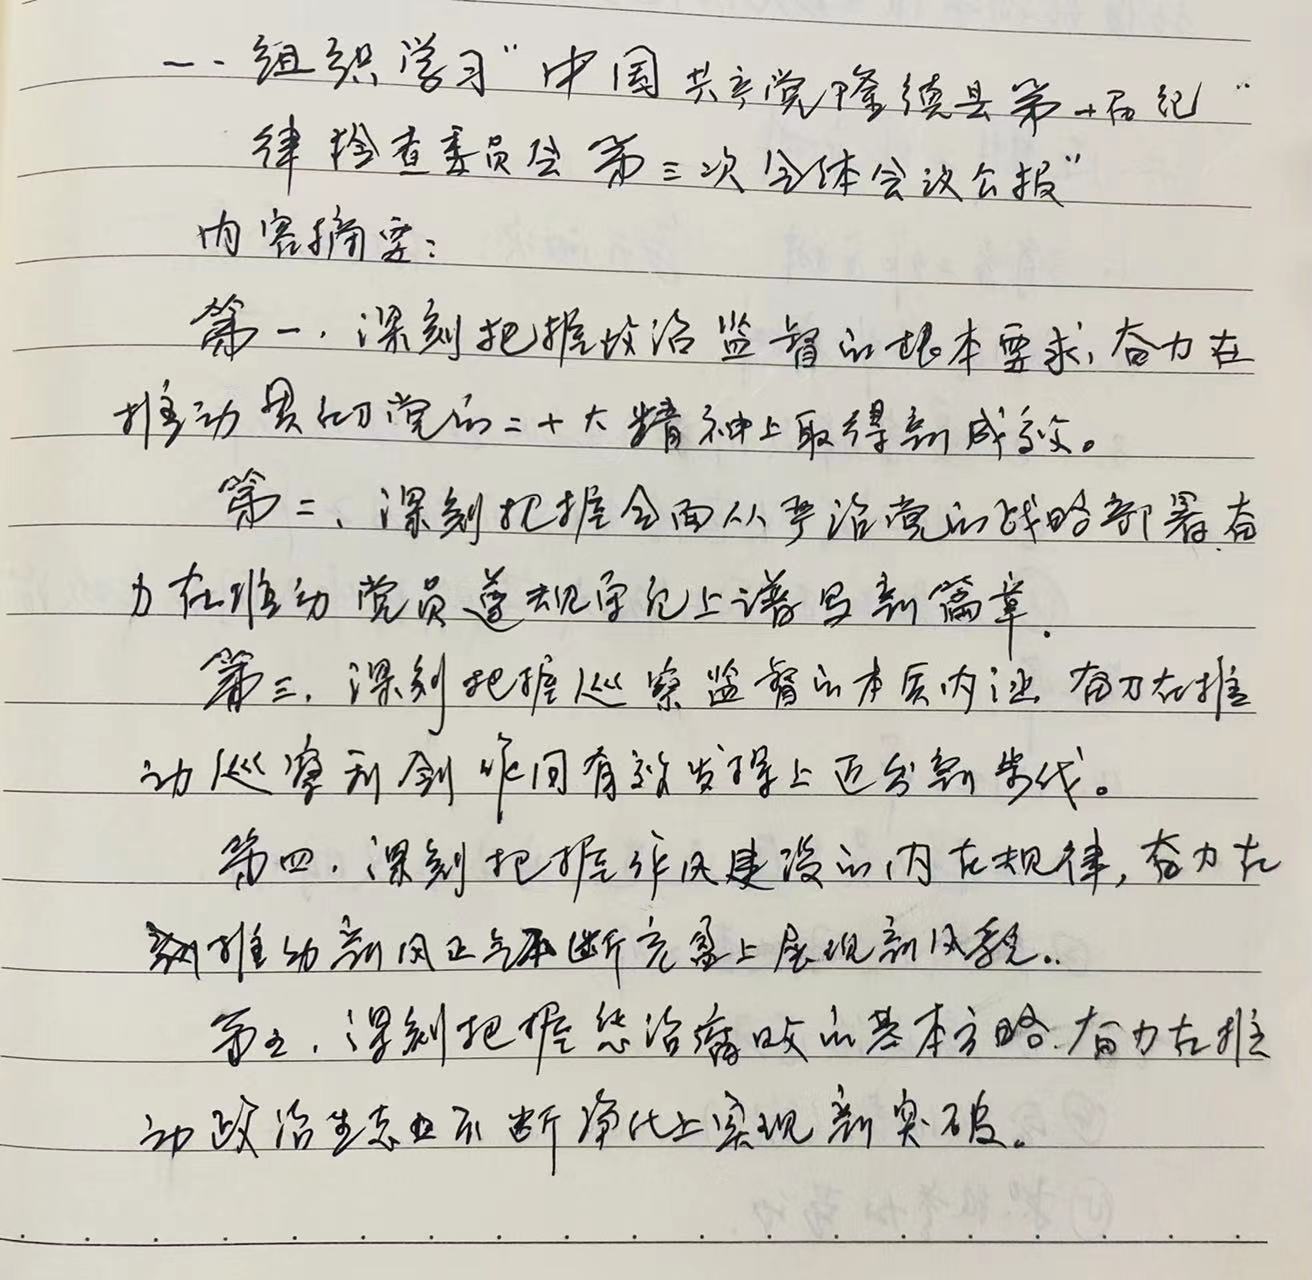 一、组织学习"中国共产党隆德县第十届纪"
律检查委员会第三次全体会议公报"
内容摘要：
第一，深刻把握政治监督的根本要求，奋力在
推动贯彻党的二十大精神上取得新成效。
第二、深刻把握全面从严治党的战略部署，奋
力在推动党员遵规守纪上谱写新篇章.
第三，深刻把握巡察监督的本质内涵 奋力在推
动巡察利剑作用有效发挥上迈出新步伐。
第四，深刻把握作风建设的内在规律，奋力在
推动新风正气不断充盈上展现新风貌..
第五，深刻把握惩治腐败的基本方略.奋力在推
动政治生态不断净化上实现新突破。